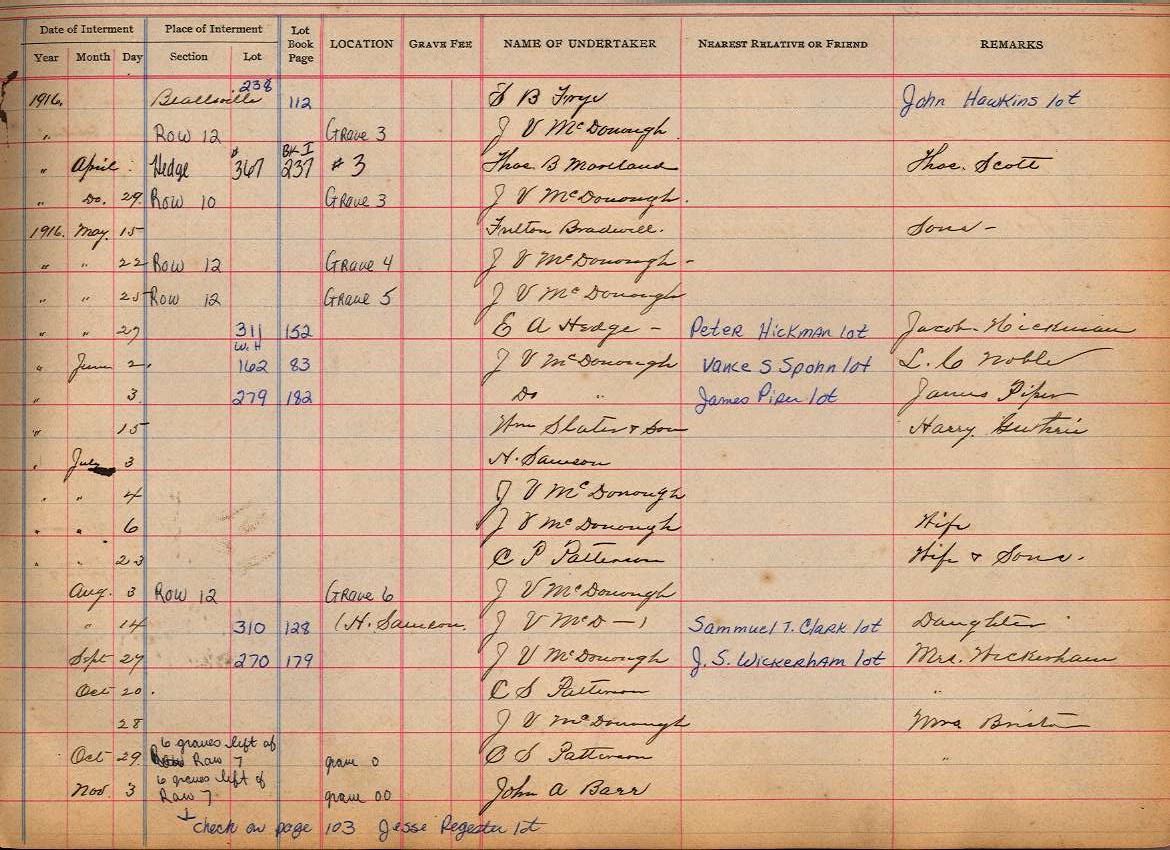 Date of Interment Place of Interment Lot Book Page LOCATION GRAVE FEE NAME OF UNDERTAKER NEAREST RELATIVE OR FRIEND REMARKS
Year Month Day Section Lot
238
1916. Beallsville 112 S B Frye John Hawkins lot
" Row 12 Grave 3 J V McDonough.
" April Hedge # 367 Bk I 237 # 3 Thos. B Moreland Thos. Scott
" Do. 29. Row 10 Grave 3 J V McDonough.
1916. May. 15 Fulton Bradwell. Sons -
" " 22 Row 12 Grave 4 J V McDonough -
" " 25 Row 12 Grave 5 J V McDonough
" " 27 311 152 E A Hedge - Peter Hickman lot Jacob Hickman
W.H
" June 2. 162 83 J V McDonough Vance S Spohn lot L. C Noble
" 3. 279 182 Do " James Piper lot James Piper
" 15 Wm Slater & Son Harry Guthrie
" July 3 H. Samson
" " 4 J V McDonough
" " 6 J V McDonough Wife
" 23 C P Patterson Wife & Sons.
Aug. 3 Row 12 Grave 6 J V McDonough
" 14 310 128 (H. Samson. J V McD—) Sammuel T. Clark lot Daughter
Sept 27 270 179 J V McDonough J. S. Wickerham lot Mrs. Wickerham
Oct 20. C S Patterson "
28 J V McDonough Mrs
6 graves left of
Oct 29. Row 7 grave 0 C S Patterson "
6 graves left of
Nov. 3 Row 7 grave 00 John A Barr
↓ check on page 103 Jesse Regester lot